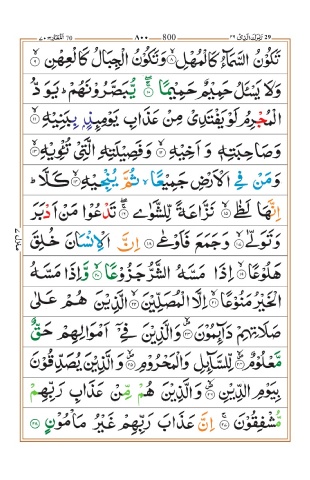 تبٰرک الذی ٢٩ 29 800 ٨٠٠ المعارج ٧٠ 70
تَكُوْنُ السَّمَآءُ كَالْمُهْلِۙ ٨ وَتَكُوْنُ الْجِبَالُ كَالْعِهْنِۙ ٩
وَلَا يَسْـَٔلُ حَمِيْمٌ حَمِيْمًاۚ ١٠ يُّبَصَّرُوْنَهُمْ ؕ يَوَدُّ
الْمُجْرِمُ لَوْ يَفْتَدِيْ مِنْ عَذَابِ يَوْمِىِٕذٍۭ بِبَنِيْهِۙ ١١
وَصَاحِبَتِهٖ وَاَخِيْهِۙ ١٢ وَفَصِيْلَتِهِ الَّتِيْ تُـْٔوِيْهِۙ ١٣
وَمَنْ فِي الْاَرْضِ جَمِيْعًاۙ ثُمَّ يُنْجِيْهِۙ ١٤ كَلَّا ؕ
اِنَّهَا لَظٰىۙ ١٥ نَزَّاعَةً لِّلشَّوٰىۚ ١٦ تَدْعُوْا مَنْ اَدْبَرَ
وَتَوَلّٰىۙ ١٧ وَجَمَعَ فَاَوْعٰى ١٨ اِنَّ الْاِنْسَانَ خُلِقَ
هَلُوْعًاۙ ١٩ اِذَا مَسَّهُ الشَّرُّ جَزُوْعًاۙ ٢٠ وَّاِذَا مَسَّهُ
الْخَيْرُ مَنُوْعًاۙ ٢١ اِلَّا الْمُصَلِّيْنَۙ ٢٢ الَّذِيْنَ هُمْ عَلٰى
صَلَاتِهِمْ دَآىِٕمُوْنَ ٢٣ وَالَّذِيْنَ فِيْٓ اَمْوَالِهِمْ حَقٌّ
مَّعْلُوْمٌ ٢٤ لِّلسَّآىِٕلِ وَالْمَحْرُوْمِ ٢٥ وَالَّذِيْنَ يُصَدِّقُوْنَ
بِيَوْمِ الدِّيْنِ ٢٦ وَالَّذِيْنَ هُمْ مِّنْ عَذَابِ رَبِّهِمْ
مُّشْفِقُوْنَۚ ٢٧ اِنَّ عَذَابَ رَبِّهِمْ غَيْرُ مَاْمُوْنٍ ٢٨